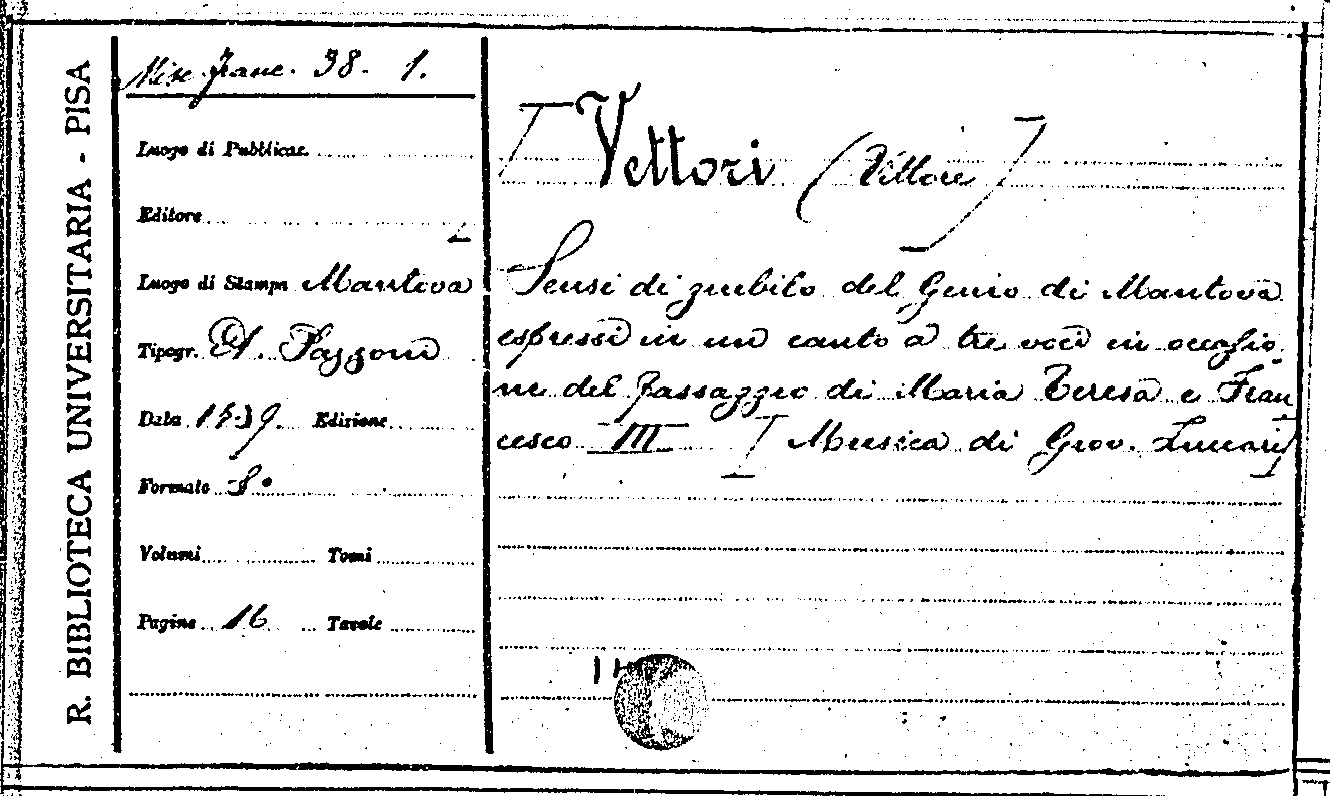 R. BIBLIOTECA UNIVERSITARIA - PISA
Misc. Franc. 38. 1.
Luogo di Pubblicaz.
Editore
Luogo di Stampa Mantova
Tipogr. A. Pazzoni
Data 1739. Edizione
Formato 8°
Volumi Tomi
Pagine 16 Tavole
[Vettori (Vittore)]
Sensi di giubilo del Genio di Mantova
espressi in un canto a tre voci in occasio
ne del passaggio di Maria Teresa e Fran
cesco III [Musica di Giov.